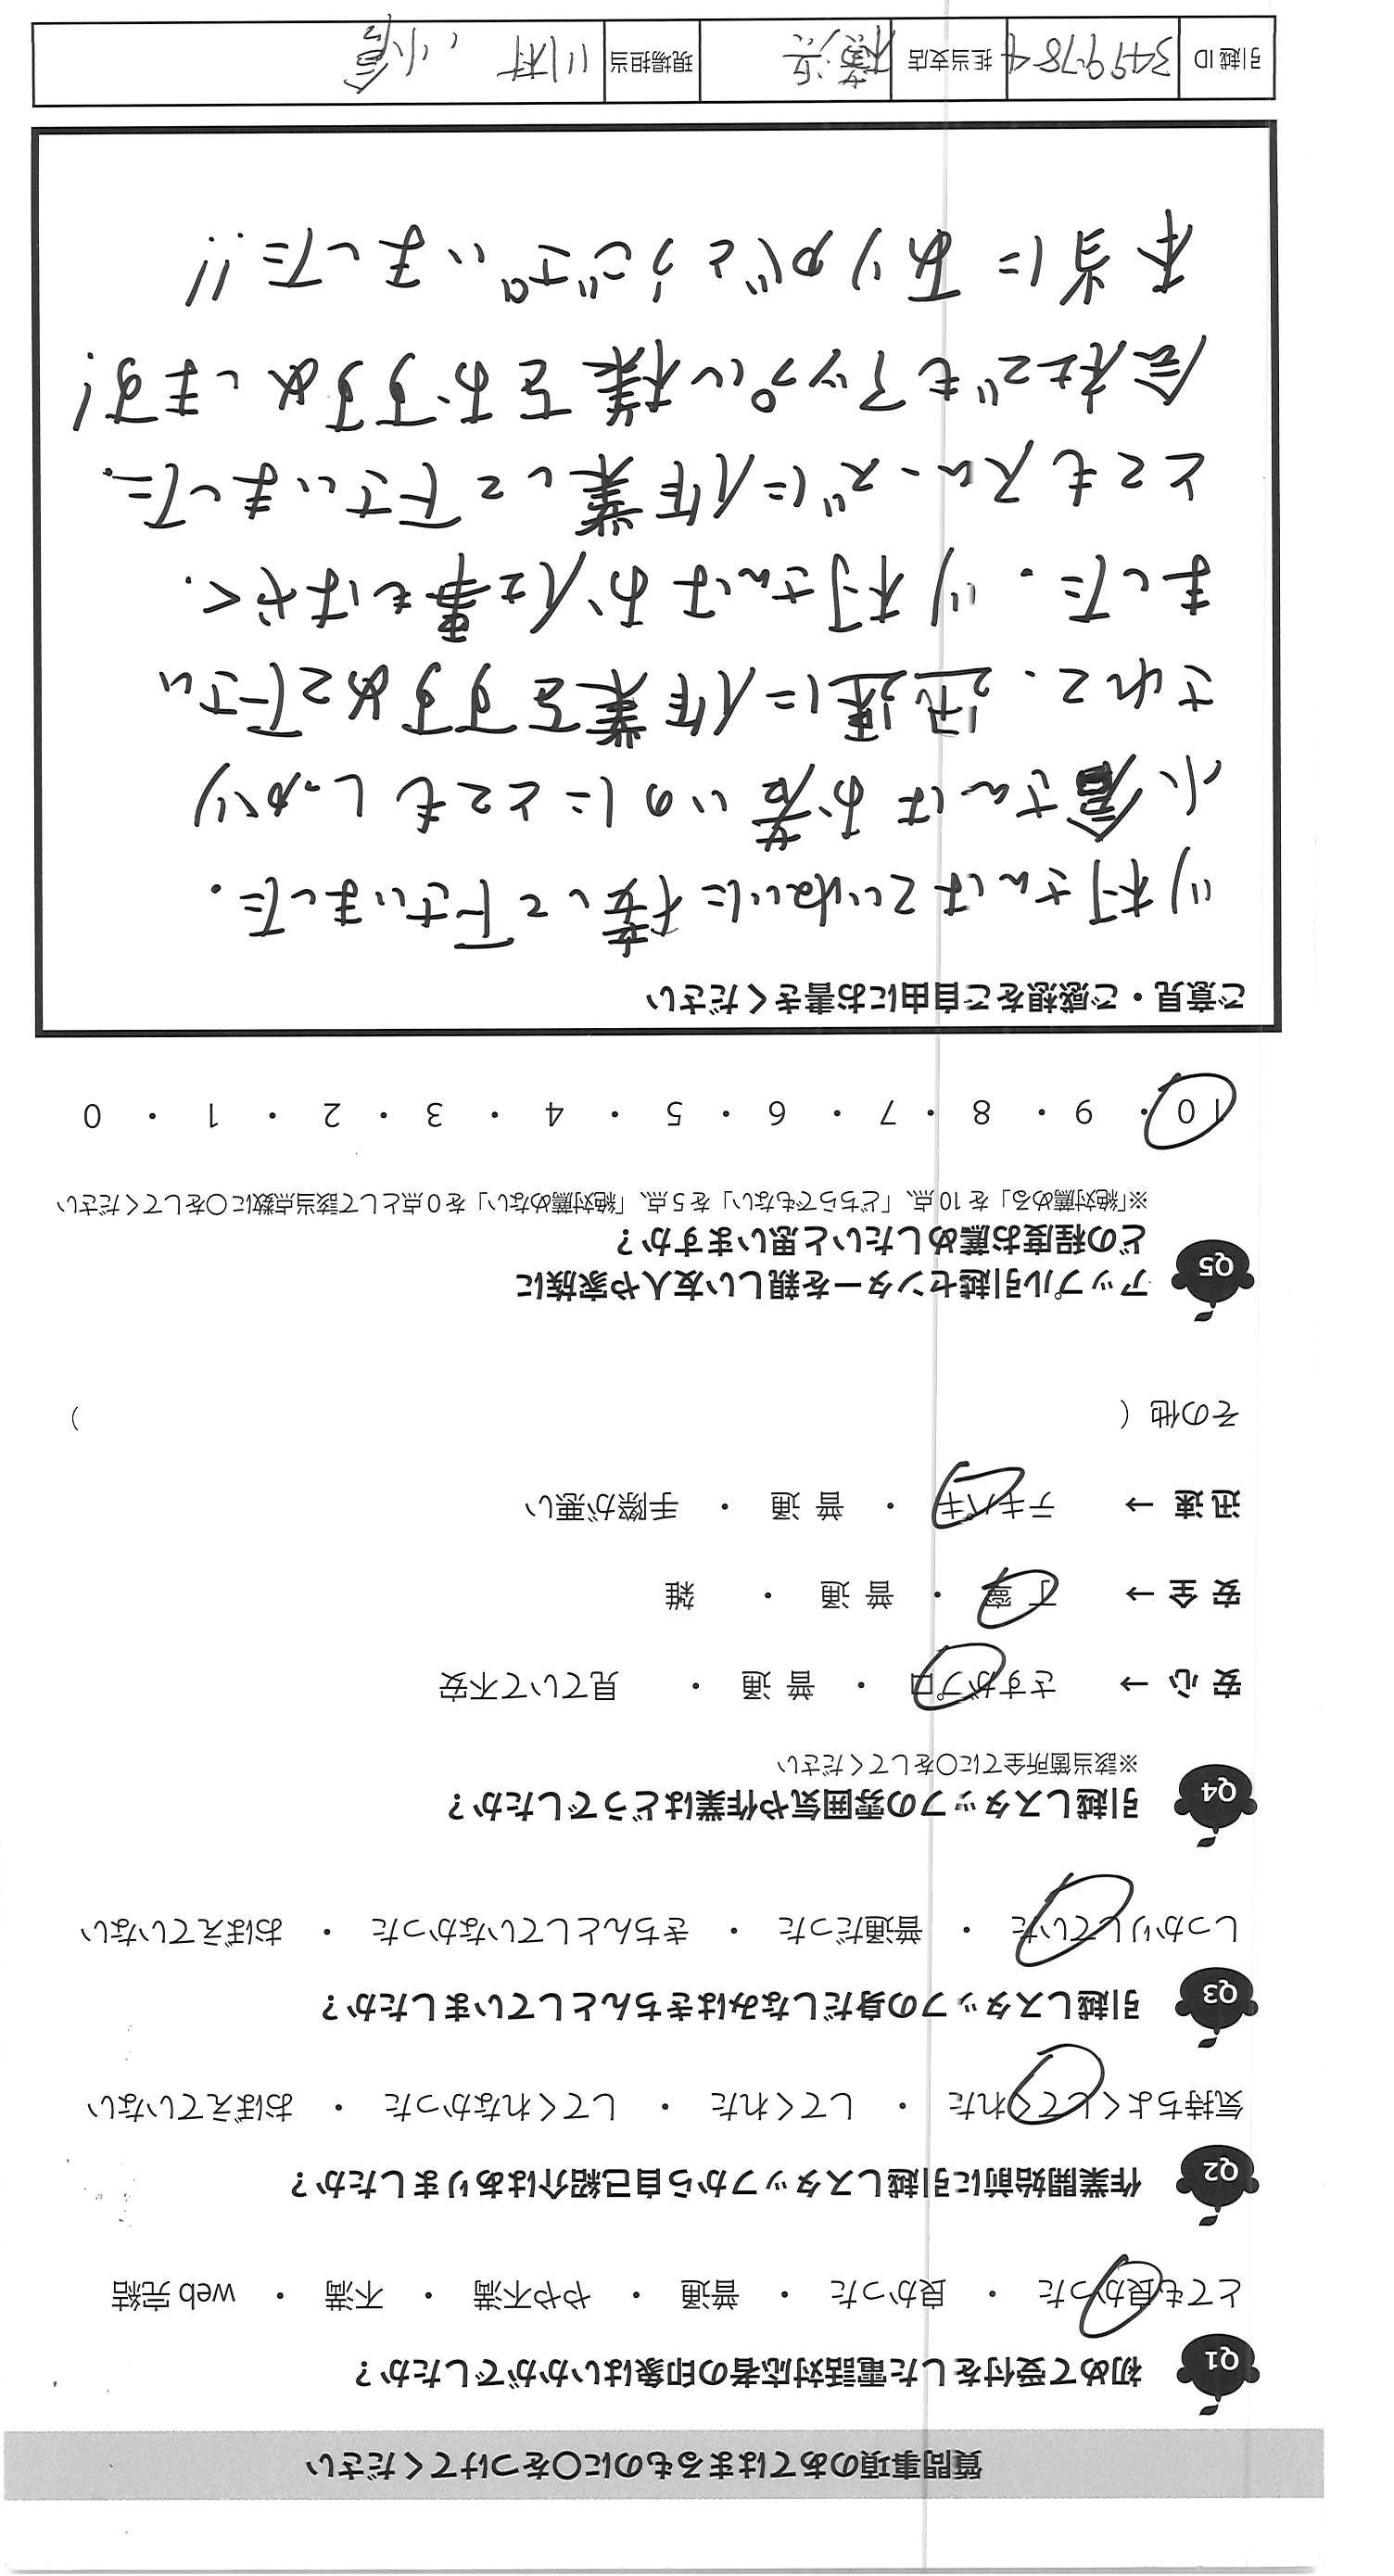 質問事項のあてはまるものに○をつけてください
Q1 初めて受付をした電話対応者の印象はいかがでしたか？
とても良かった ・ 良かった ・ 普通 ・ やや不満 ・ 不満 ・ web完結
Q2 作業開始前に引越しスタッフから自己紹介はありましたか？
気持ちよくしてくれた ・ してくれた ・ してくれなかった ・ おぼえていない
Q3 引越しスタッフの身だしなみはきちんとしていましたか？
しっかりしていた ・ 普通だった ・ きちんとしていなかった ・ おぼえていない
Q4 引越しスタッフの雰囲気や作業はどうでしたか？
※該当箇所全てに○をしてください
安心 → さすがプロ ・ 普通 ・ 見ていて不安
安全 → 丁寧 ・ 普通 ・ 雑
迅速 → テキパキ ・ 普通 ・ 手際が悪い
その他（ ）
Q5 アップル引越センターを親しい友人や家族に
どの程度お薦めしたいと思いますか？
※「絶対薦める」を10点、「どちらでもない」を5点、「絶対薦めない」を0点として該当点数に○をしてください
10 ・ 9 ・ 8 ・ 7 ・ 6 ・ 5 ・ 4 ・ 3 ・ 2 ・ 1 ・ 0
ご意見・ご感想をご自由にお書きください
川村さんはていねいに接して下さいました。
小倉さんはお若いのにとてもしっかり
されて、迅速に作業をすすめて下さい
ました。川村さんはお仕事もはやく、
とてもスムーズに作業して下さいました。
会社でもアップル様をおすすめします！
本当にありがとうございました！！
引越ID 3459784 担当支店 横浜 現場担当 川村、小倉